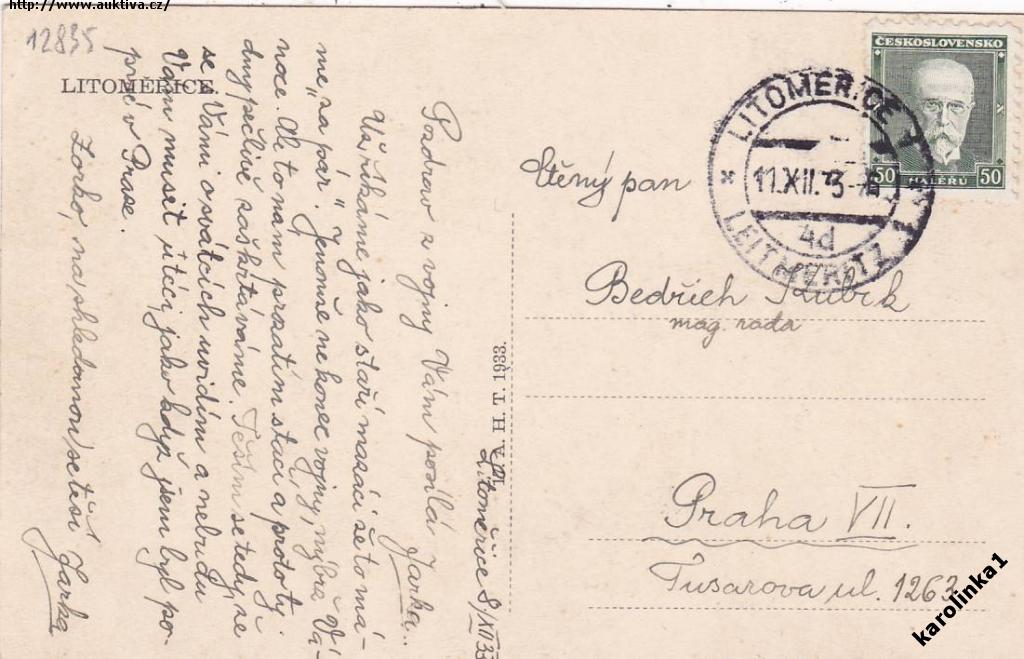 http://www.auktiva.cz/
12835
LITOMĚŘICE.
Pozdrav z vojny Vám posílá Jarka.
Už říkáme jako staří mazáci že to má-
me „na pár". Jenomže ne konec vojny, nýbrž Vá-
noce. Ale to nám prozatím stačí a proto ty
dny pečlivě zaškrtáváme. Těším se tedy, že
se s Vámi o svátcích uvidím a nebudu
Vám muset utéci, jako když jsem byl po-
prvé v Praze.
Zorko, na shledanou se těší Jarka
Litoměřice 8/XII 33
M. V. H. T. 1933.
ČESKOSLOVENSKO
50 HALÉRŮ 50
LITOMĚŘICE 1
11.XII.33-
4d
LEITMERITZ 1
Ctěný pan
Bedřich Kubík
mag. rada
Praha VII.
Tusarova ul. 1263
karolinka1